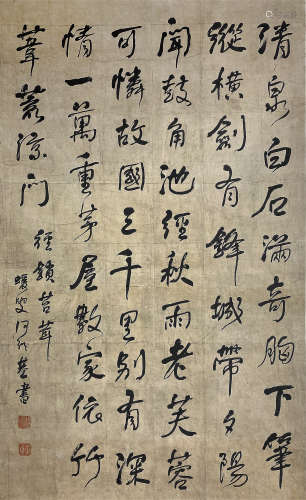 清泉白石滿奇胸下筆
縱橫劍有鋒城帶夕陽
聞鼓角池經秋雨老芙蓉
可憐故國三千里別有深
情一萬重茅屋數家依竹
葦蒼涼門徑鎖苔茸
蝯叟何紹基書